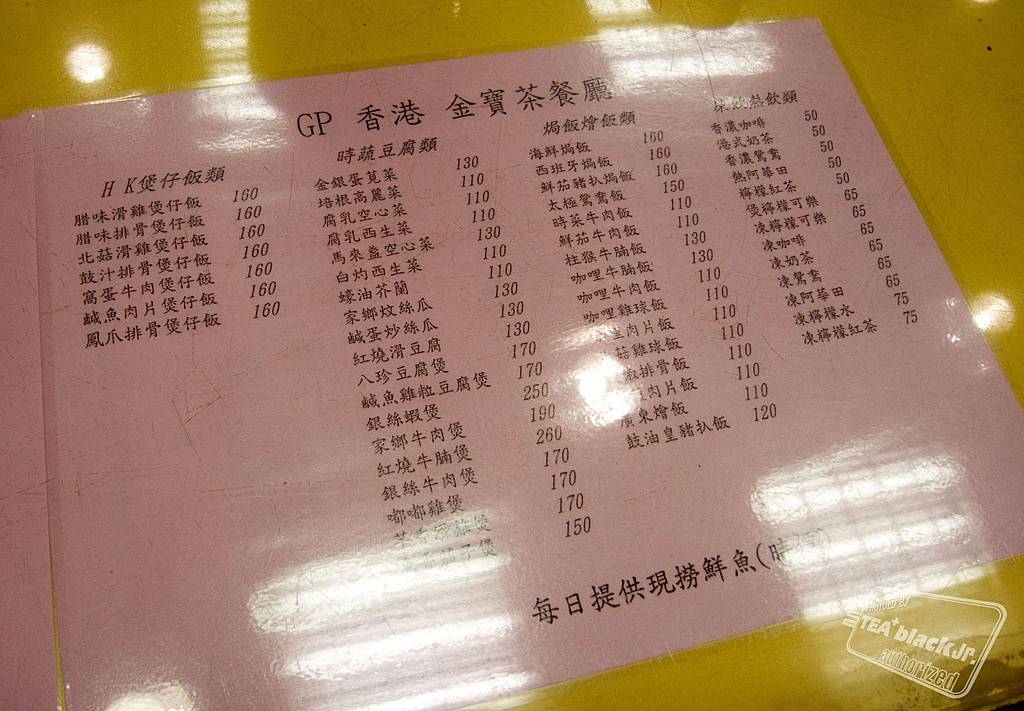 GP 香港 金寶茶餐廳
H K煲仔飯類
腊味滑雞煲仔飯 160
腊味排骨煲仔飯 160
北菇滑雞煲仔飯 160
鼓汁排骨煲仔飯 160
窩蛋牛肉煲仔飯 160
鹹魚肉片煲仔飯 160
鳳爪排骨煲仔飯 160
時蔬豆腐類
金銀蛋莧菜 130
培根高麗菜 110
腐乳空心菜 110
腐乳西生菜 110
馬來盞空心菜 130
白灼西生菜 110
蠔油芥蘭 110
家鄉炆絲瓜 130
鹹蛋炒絲瓜 130
紅燒滑豆腐 130
八珍豆腐煲 170
鹹魚雞粒豆腐煲 170
銀絲蝦煲 250
家鄉牛肉煲 190
紅燒牛腩煲 260
銀絲牛肉煲 170
嘟嘟雞煲 170
滑雞煲 170
煲 150
焗飯燴飯類
海鮮焗飯 160
西班牙焗飯 160
鮮茄豬扒焗飯 160
太極鴛鴦飯 150
時菜牛肉飯 110
鮮茄牛肉飯 110
柱猴牛腩飯 130
咖哩牛腩飯 130
咖哩牛肉飯 110
咖哩雞球飯 110
生肉片飯 110
菇雞球飯 110
椒排骨飯 110
肉片飯 110
廣東燴飯 110
鼓油皇豬扒飯 120
熱飲類
香濃咖啡 50
港式奶茶 50
香濃鴛鴦 50
熱阿華田 50
檸檬紅茶 50
煲檸檬可樂 65
凍檸檬可樂 65
凍咖啡 65
凍奶茶 65
凍鴛鴦 65
凍阿華田 65
凍檸檬水 75
凍檸檬紅茶 75
每日提供現撈鮮魚(時
PHOTOED BY
TEA+blackJr.
authorized